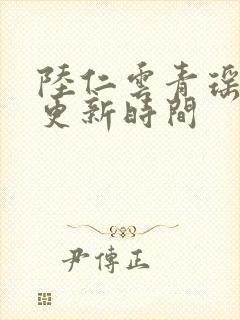 陸仁雲青瑶
更新時間
尹傳正